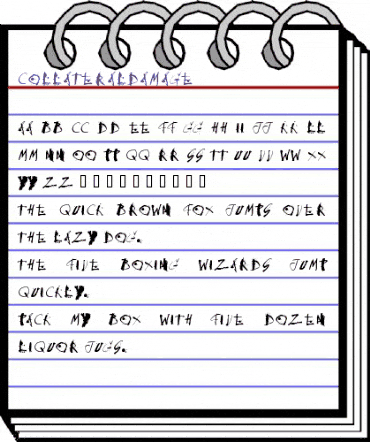 COLLATERALDAMAGE
AA BB CC DD EE FF GG HH II JJ KK LL
MM NN OO PP QQ RR SS TT UU VV WW XX
YY ZZ
THE QUICK BROWN FOX JUMPS OVER
THE LAZY DOG.
THE FIVE BOXING WIZARDS JUMP
QUICKLY.
PACK MY BOX WITH FIVE DOZEN
LIQUOR JUGS.